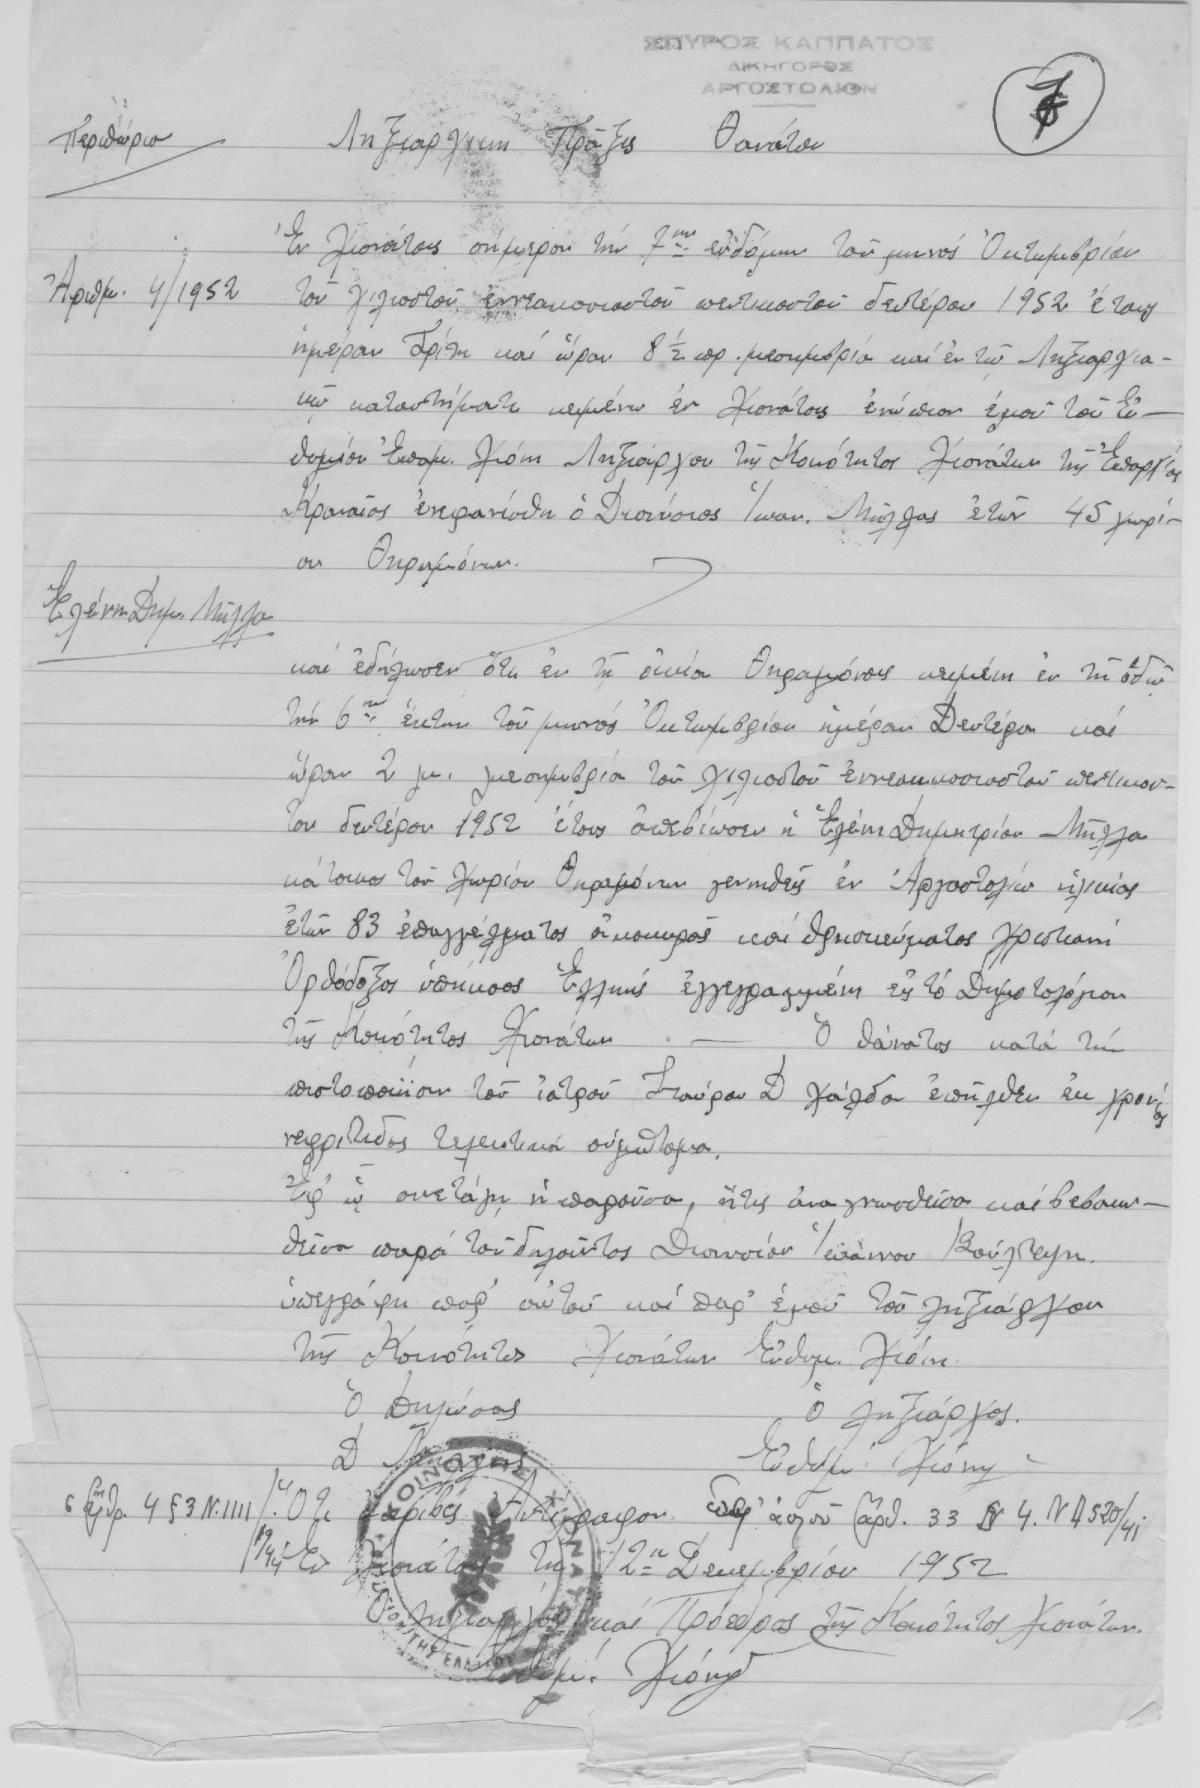 ΣΠΥΡΟΣ ΚΑΠΠΑΤΟΣ
ΔΙΚΗΓΟΡΟΣ
ΑΡΓΟΣΤΟΛΙΟΝ
7
Περιθώριο
Ληξιαρχική Πράξις Θανάτου
Ἀριθμ. 4/1952
Ἐν Χιονάτοις σήμερον τήν 7ην ἑβδόμην τοῦ μηνός Ὀκτωμβρίου
τοῦ χιλιοστοῦ ἐννεακοσιοστοῦ πεντικοστοῦ δευτέρου 1952 ἔτους
ἡμέραν Τρίτη καί ὥραν 8 1/2 πρ. μεσημβρία καί ἐν τῷ Ληξιαρχια-
κῷ καταστήματι κειμένῳ ἐν Χιονάτοις ἐνώπιον ἐμοῦ τοῦ Εὐ-
θυμίου Ἐπαμ. Χιόνη Ληξιάρχου τῆς Κοινότητος Χιονάτων τῆς Ἐπαρχίας
Κραναίας ἐνεφανίσθη ὁ Διονύσιος Ἰωαν. Μήλλας ἐτῶν 45 χωρί-
ου Θηραμόνων.
Ἑλένη Δημ. Μήλλα
καί ἐδήλωσεν ὅτι ἐν τῇ οἰκίᾳ Θηραμόνας κειμένη ἐν τῇ ὁδῷ
τήν 6ην ἕκτην τοῦ μηνός Ὀκτωμβρίου ἡμέραν Δευτέρα καί
ὥραν 2 μ. μεσημβρία τοῦ χιλιοστοῦ ἐννεακοσιοστοῦ πεντικοσ-
τοῦ δευτέρου 1952 ἔτους ἀπεβίωσεν ἡ Ἑλένη Δημητρίου Μήλλα
κάτοικος τοῦ χωρίου Θηραμόνων γεννηθεῖς ἐν Ἀργοστολίῳ ἡλικίας
ἐτῶν 83 ἐπαγγέλματος οἰκοκυρᾶς καί θρησκεύματος χριστιανή
Ὀρθόδοξος ὑπήκοος Ἑλληνίς ἐγγεγραμμένη εἰς τό Δημοτολόγιον
τῆς Κοινότητος Χιονάτων — Ὁ θάνατος κατά τήν
πιστοποίησιν τοῦ ἰατροῦ Σταύρου Δ Χάλδα ἐπῆλθεν ἐκ χρονίας
νεφρίτιδος τελευταῖα σύμπτωμα.
Ἐφ' ᾧ συνετάγη ἡ παροῦσα, ἥτις ἀναγνωσθεῖσα καί βεβαιω-
θεῖσα παρά τοῦ δηλοῦντος Διονυσίου Ἰωάννου
ὑπεγράφη παρ' αὐτοῦ καί παρ' ἐμοῦ τοῦ ληξιάρχου
τῆς Κοινότητος Χιονάτων Εὐθυμ. Χιόνη.
Ὁ Δηλώσας Ὁ ληξίαρχος.
Δ Μήλλας Εὐθυμ. Χιόνης
4 § 3 Ν. 1111 Ὅτι ἀκριβές Ἀντίγραφον παρ' ἀρθ. 33 § 4. Ν Δ 520/41
Ἐν Χιονάτοις τῇ 12ῃ Δεκεμβρίου 1952
Ὁ Ληξίαρχος καί Πρόεδρος τῆς Κοινότητος Χιονάτων.
Εὐθυμ. Χιόνης
ΚΟΙΝΟΤΗΣ ΧΙΟΝΑΤΩΝ